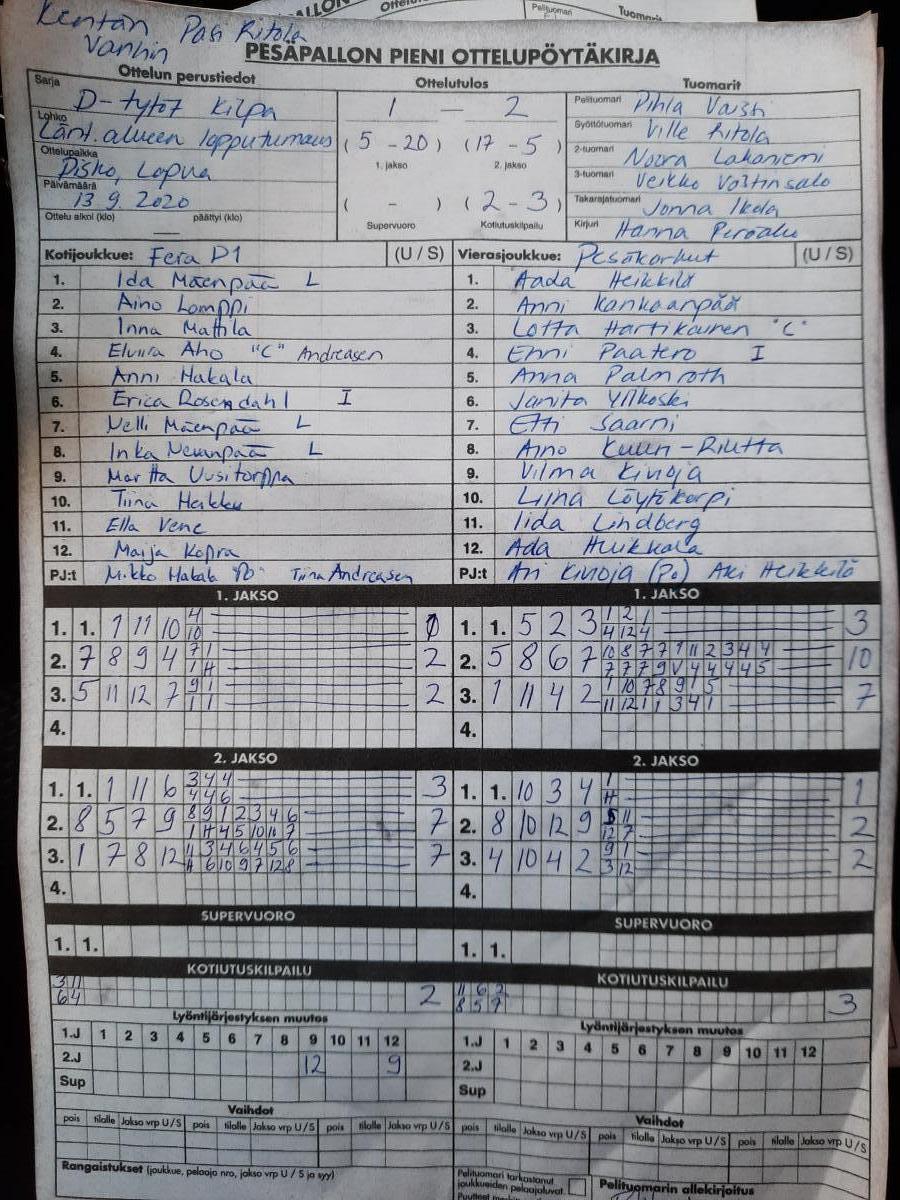 Kentän Vanhin Pasi Ritola
PESÄPALLON PIENI OTTELUPÖYTÄKIRJA
Ottelun perustiedot
Sarja D-tytöt Kilpa
Lohko Länt. alueen lopputurnaus
Ottelupaikka Pisko, Lapua
Päivämäärä 13.9.2020
Ottelu alkoi (klo) päättyi (klo)
Ottelutulos
1 — 2
(5 - 20) (17 - 5)
1. jakso 2. jakso
( - ) (2 - 3)
Supervuoro Kotiutuskilpailu
Tuomarit
Pelituomari Pihla
Syöttötuomari Ville Ritola
2-tuomari Noora Lakaniemi
3-tuomari Veikko
Takarajatuomari Jonna Ikola
Kirjuri Hanna
Kotijoukkue: Fera D1 (U / S)
1. Ida Mäenpää L
2. Aino Lomppi
3. Inna Mattila
4. Elviira Aho "C" Andreasen
5. Anni Hakala
6. Erica Rosendahl I
7. Nelli Mäenpää L
8. Inka Nevanpää L
9. Martta Uusitorppa
10. Tiina Heikku
11. Ella Vene
12. Maija Kopra
PJ:t Mikko Hakala Tiina Andreasen
Vierasjoukkue: Pesäkarhut (U / S)
1. Aada Heikkilä
2. Anni Kankaanpää
3. Lotta Hartikainen "C"
4. Enni Paatero I
5. Anna Palmroth
6. Janita Ylikoski
7. Etti Saarni
8. Aino Kuuri-Riutta
9. Vilma Kinoja
10. Liina Löytökorpi
11. Iida Lindberg
12. Ada
PJ:t Ari Kinoja (Po) Aki Heikkilä
1. JAKSO
1. 1. 1 11 10 4 0
10
2. 7 8 9 4 7 1 2
1 H
3. 5 11 12 7 9 1 2
1 1
4.
1. JAKSO
1. 1. 5 2 3 1 2 1 3
4 12 4
2. 5 8 6 7 10 8 7 7 1 11 2 3 4 4 10
7 7 7 9 V 4 4 4 4 5
3. 1 11 4 2 1 10 7 8 9 1 5 7
11 12 1 1 3 4 1
4.
2. JAKSO
1. 1. 1 11 6 3 4 4 3
4 4 6
2. 8 5 7 9 8 9 1 2 3 4 6 7
1 H 4 5 10 11 7
3. 1 7 8 12 11 3 4 6 4 5 6 7
H 6 10 9 7 12 8
4.
2. JAKSO
1. 1. 10 3 4 1 1
H
2. 8 10 12 9 5 11 2
12 7
3. 4 10 4 2 9 1 2
3 12
4.
SUPERVUORO
1. 1.
SUPERVUORO
1. 1.
KOTIUTUSKILPAILU
3 11 2
6 4
KOTIUTUSKILPAILU
11 6 2 3
8 5 7
Lyöntijärjestyksen muutos
1.J 1 2 3 4 5 6 7 8 9 10 11 12
2.J 12 9
Sup
Lyöntijärjestyksen muutos
1.J 1 2 3 4 5 6 7 8 9 10 11 12
2.J
Sup
Vaihdot
pois tilalle Jakso vrp U / S pois tilalle Jakso vrp U / S pois tilalle Jakso vrp U / S
Vaihdot
pois tilalle Jakso vrp U / S pois tilalle Jakso vrp U / S pois tilalle Jakso vrp U / S
Rangaistukset (joukkue, pelaaja nro, jakso vrp U / S ja syy)
Pelituomari tarkastanut
joukkueiden pelaajaluvat.
Pelituomarin allekirjoitus